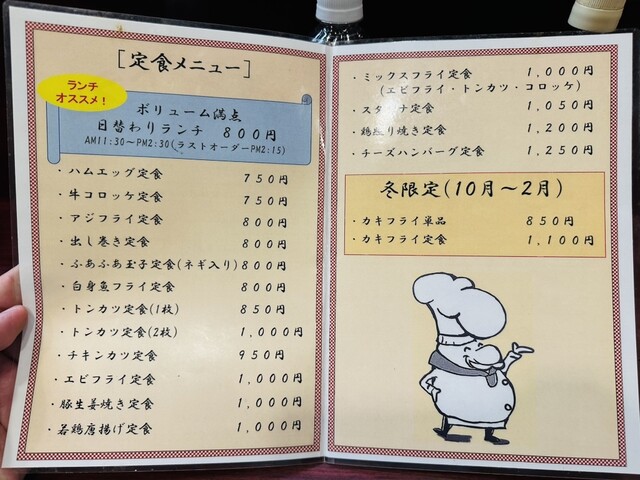 [定食メニュー]
ランチ
オススメ!
ボリューム満点
日替わりランチ 800円
AM11:30～PM2:30(ラストオーダーPM2:15)
・ハムエッグ定食 750円
・牛コロッケ定食 750円
・アジフライ定食 800円
・出し巻き定食 800円
・ふあふあ玉子定食(ネギ入り) 800円
・白身魚フライ定食 800円
・トンカツ定食(1枚) 850円
・トンカツ定食(2枚) 1,000円
・チキンカツ定食 950円
・エビフライ定食 1,000円
・豚生姜焼き定食 1,000円
・若鶏唐揚げ定食 1,000円
・ミックスフライ定食 1,000円
(エビフライ・トンカツ・コロッケ)
・スタミナ定食 1,050円
・鶏照り焼き定食 1,200円
・チーズハンバーグ定食 1,250円
冬限定(10月～2月)
・カキフライ単品 850円
・カキフライ定食 1,100円